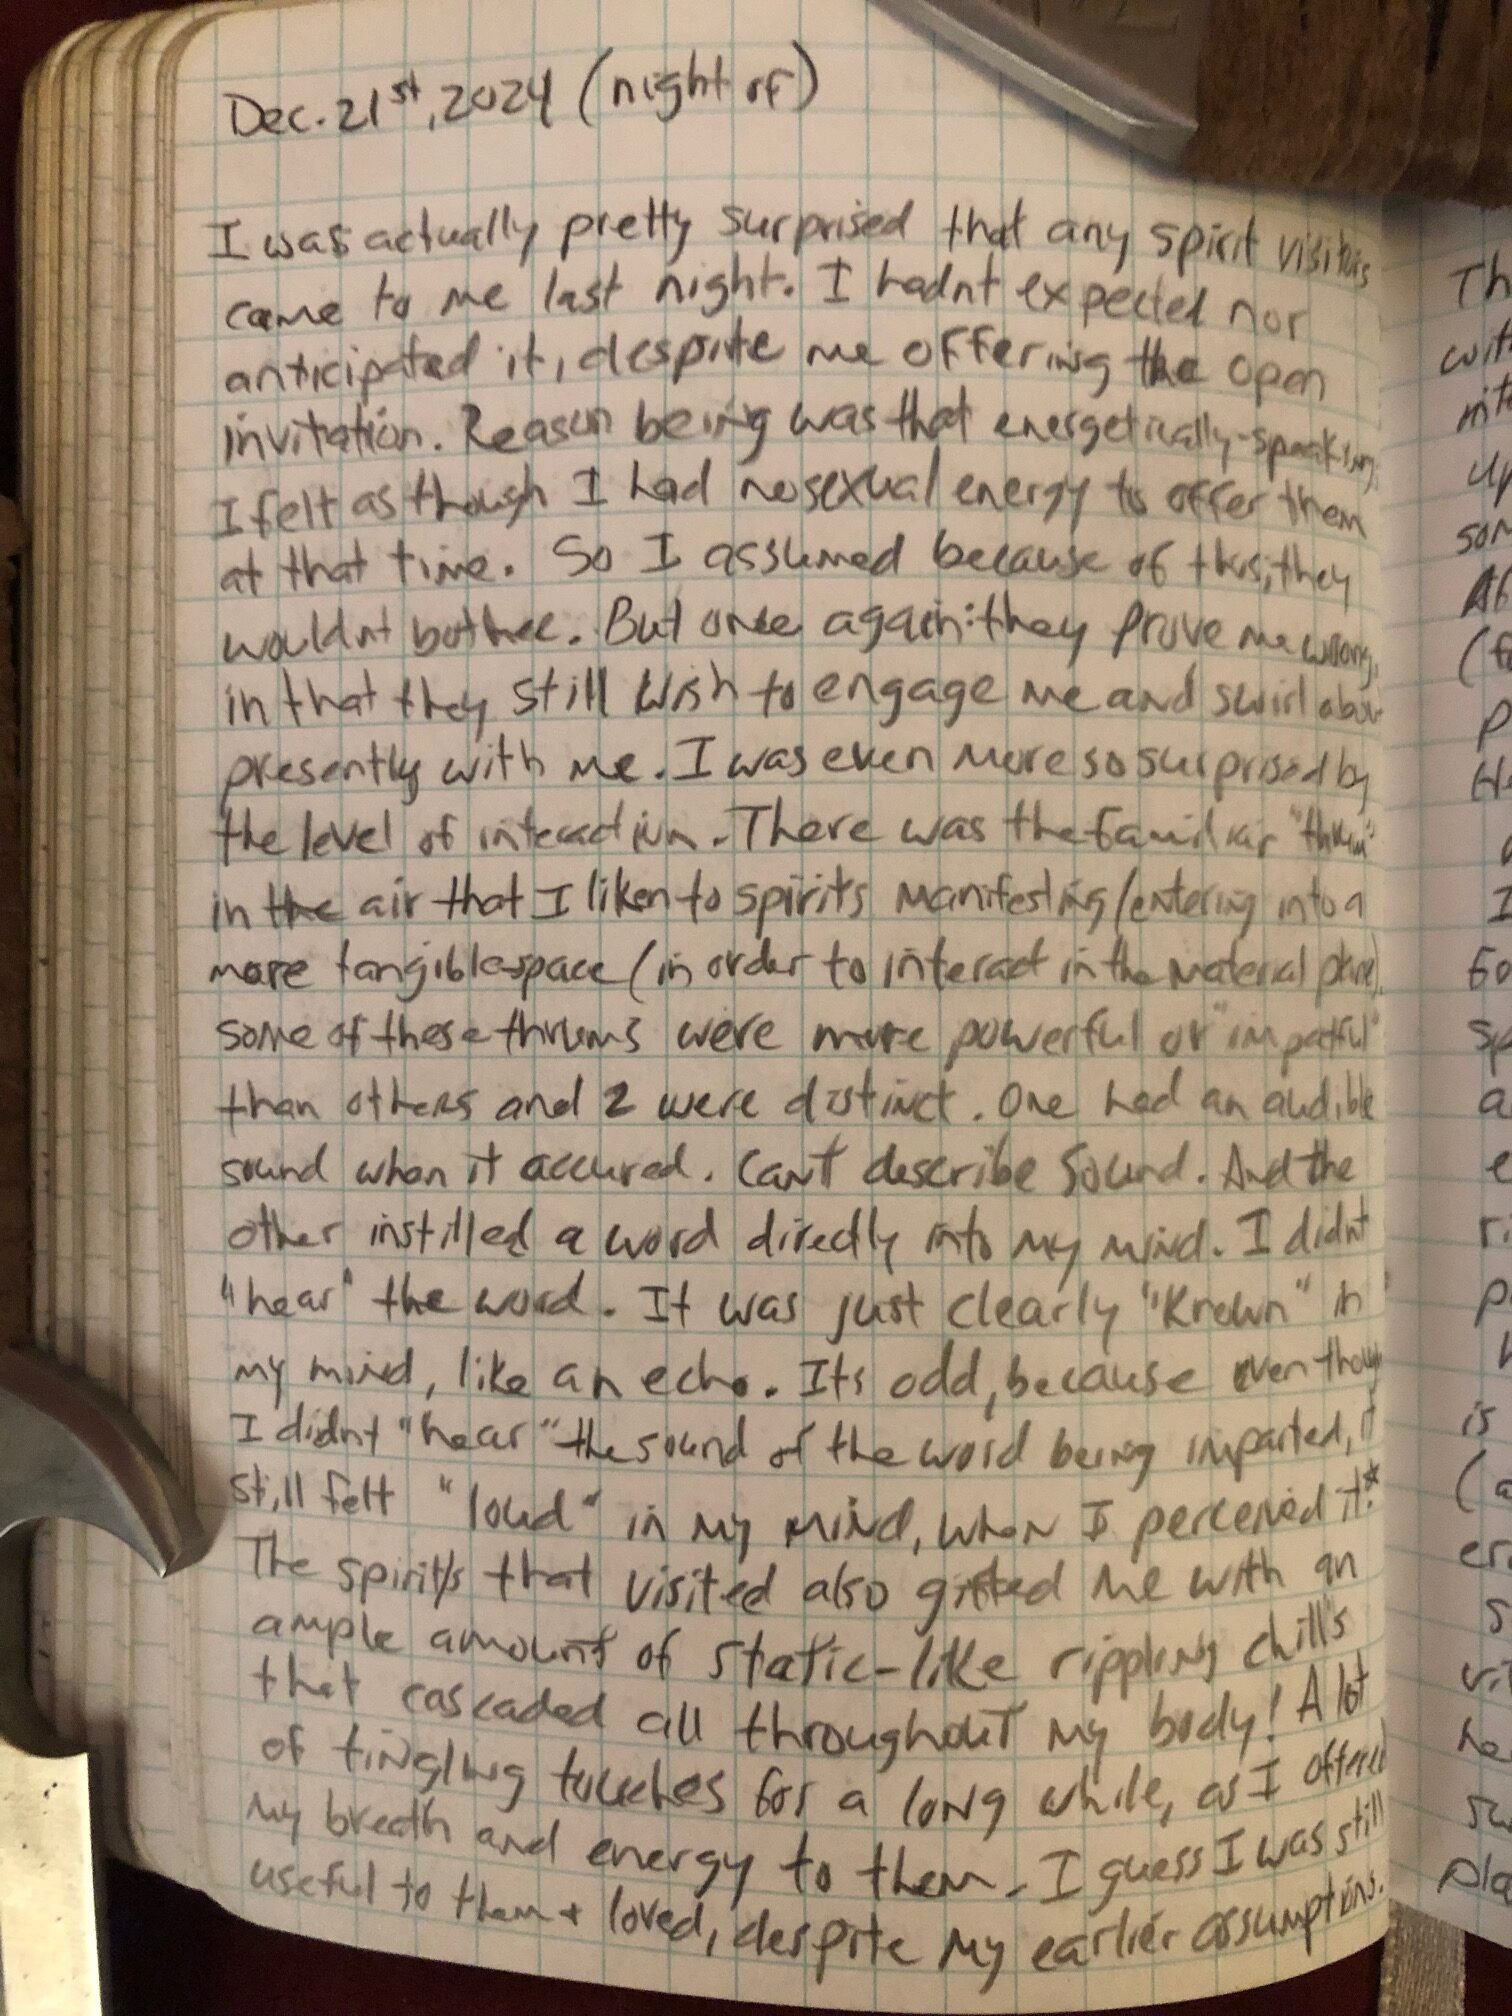 Dec. 21st, 2024 (night of)
I was actually pretty surprised that any spirit visitors
came to me last night. I hadnt expected nor
anticipated it, despite me offering the open
invitation. Reason being was that energetically-speaking,
I felt as though I had no sexual energy to offer them
at that time. So I assumed because of this, they
wouldnt bother. But once again: they prove me wrong,
in that they still wish to engage me and swirl about
presently with me. I was even more so surprised by
the level of interaction. There was the familiar "thrum"
in the air that I liken to spirits manifesting/entering into a
more tangible space (in order to interact in the material plane).
some of these thrums were more powerful or "impatful"
than others and 2 were distinct. One had an audible
sound when it accured. Cant describe sound. And the
other instilled a word directly into my mind. I didnt
"hear" the word. It was just clearly "known" in
my mind, like an echo. Its odd, because even though
I didnt "hear" the sound of the word being imparted, it
still felt "loud" in my mind, when I perceived it.*
The spirit/s that visited also gifted me with an
ample amount of static-like rippling chills
that cascaded all throughout my body! A lot
of tingling touches for a long while, as I offered
my breath and energy to them. I guess I was still
useful to them + loved, despite my earlier assumptions.